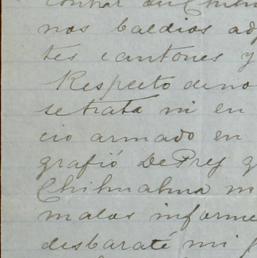 nos baldios ad
tes cantones y
Respecto de no
se trata ni en
cio armado en
grafió De Prey q
Chihuahua m
malos informe
desbaraté mi